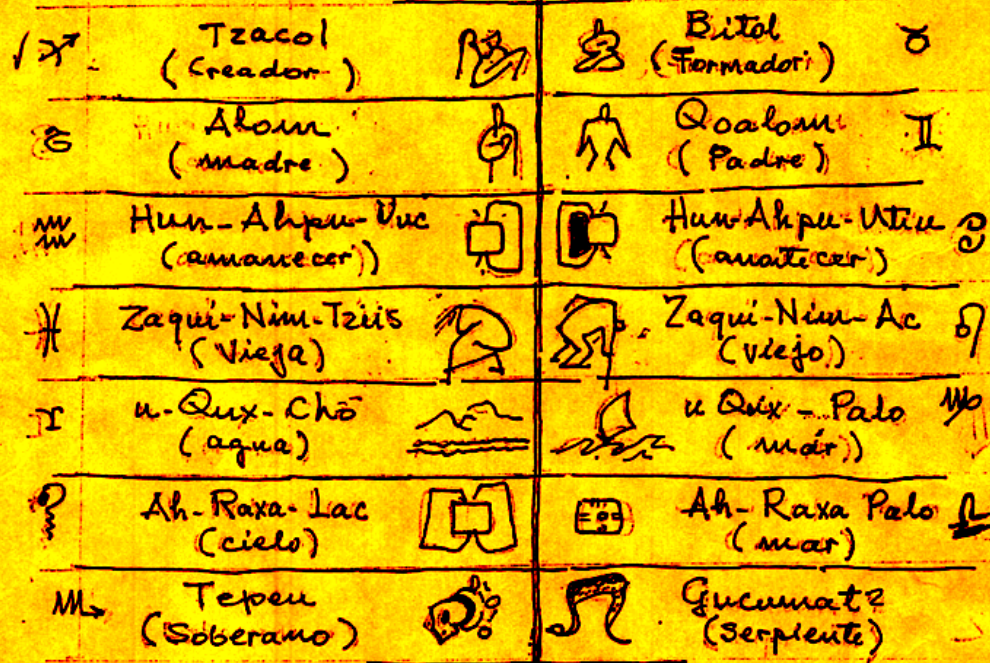 Tzacol
(Creador)
Bitol
(Formador)
Alom
(madre)
Qoalom
(Padre)
Hun-Ahpu-Vuc
(amanecer))
Hun-Ahpu-Utiu
(anoitecer)
Zaqui-Nim-Tziis
(Vieja)
Zaqui-Nim-Ac
(viejo)
u-Qux-Chō
(agua)
u Qux-Palo
(már))
Ah-Raxa-Lac
(cielo)
Ah-Raxa Palo
(mar)
Tepeu
(Soberano)
Gucumatz
(Serpiente)